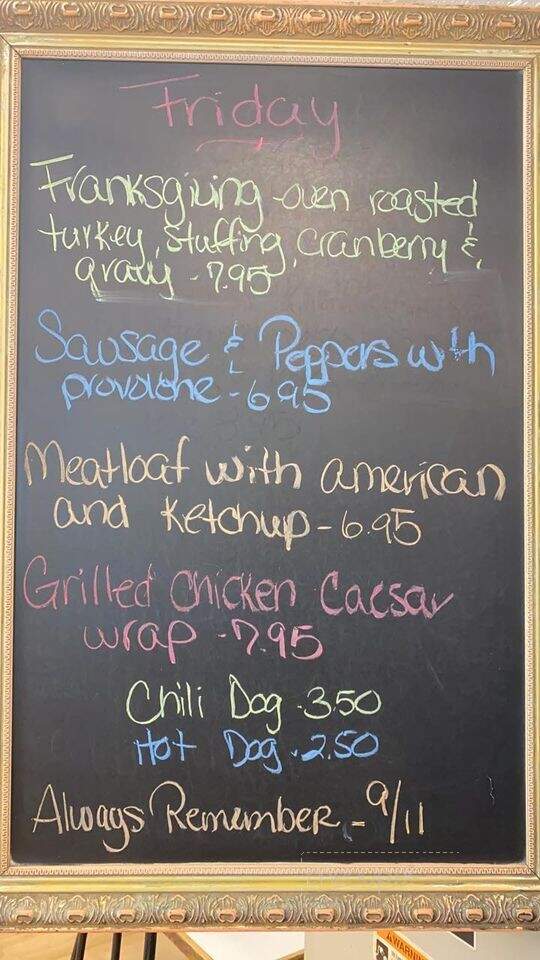 Friday
Franksgiving - oven roasted
turkey, stuffing, cranberry &
gravy - 7.95
Sausage & Peppers with
provolone - 6.95
Meatloaf with american
and ketchup - 6.95
Grilled Chicken Caesar
wrap - 7.95
Chili Dog - 3.50
Hot Dog - 2.50
Always Remember - 9/11
WARNING